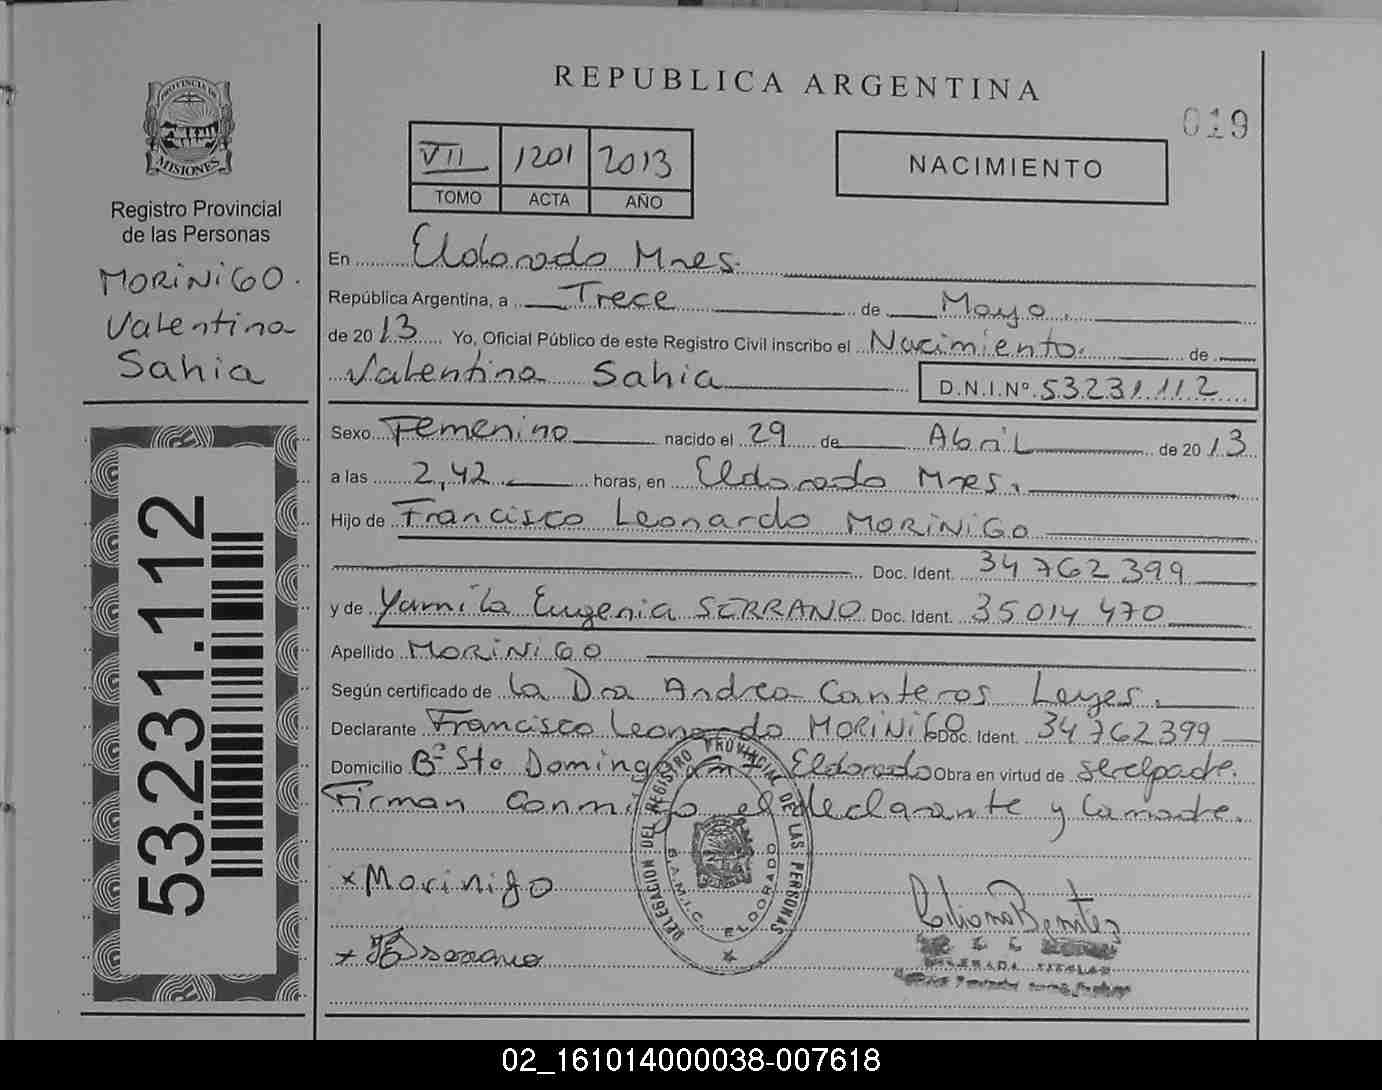 REPUBLICA ARGENTINA
019
PROVINCIA DE
MISIONES
Registro Provincial
de las Personas
MORINIGO.
Valentina
Sahia
53.231.112
VII 1201 2013
TOMO ACTA AÑO
NACIMIENTO
En Eldorado Mnes.
República Argentina, a Trece de Mayo.
de 2013 Yo, Oficial Público de este Registro Civil inscribo el Nacimiento. de
Valentina Sahia D.N.I.Nº 53231112
Sexo Femenino nacido el 29 de Abril de 2013
a las 2,42 horas, en Eldorado Mnes.
Hijo de Francisco Leonardo MORINIGO
Doc. Ident. 34762399
y de Yamila Eugenia SERRANO Doc. Ident. 35014470
Apellido MORINIGO
Según certificado de la Dra Andrea Canteros Leyes.
Declarante Francisco Leonardo MORINIGO Doc. Ident. 34762399
Domicilio Bº Sto Domingo km 7 Eldorado Obra en virtud de ser el padre.
Firman conmigo el declarante y la madre.
DELEGACION DEL REGISTRO PROVINCIAL DE LAS PERSONAS
S.A.M.I.C. ELDORADO
x Morinigo
x Serrano
Liliana Benitez
02_161014000038-007618